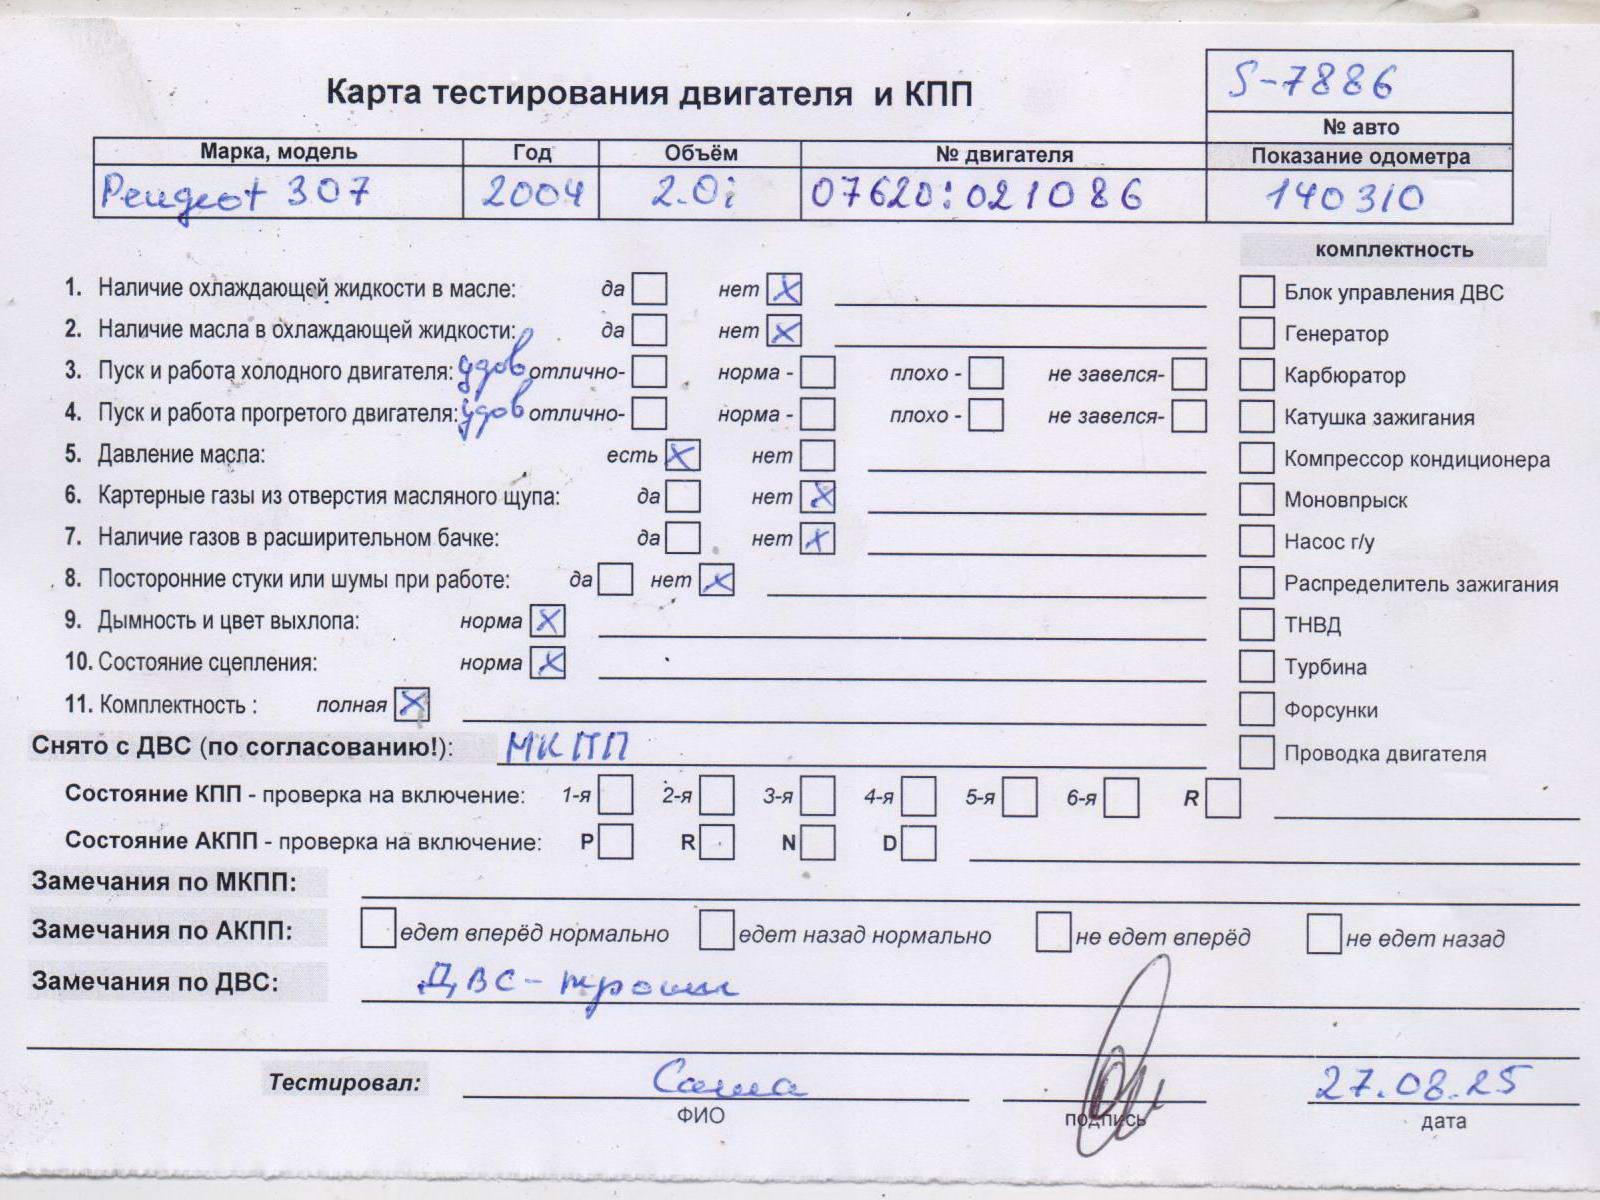 S-7886
Карта тестирования двигателя и КПП
№ авто
Марка, модель Год Объём № двигателя Показание одометра
Peugeot 307 2004 2.0i 07620:021086 140310
комплектность
1. Наличие охлаждающей жидкости в масле: да нет X
Блок управления ДВС
2. Наличие масла в охлаждающей жидкости: да нет X
Генератор
3. Пуск и работа холодного двигателя: удов отлично- норма - плохо - не завелся-
Карбюратор
4. Пуск и работа прогретого двигателя: удов отлично- норма - плохо - не завелся-
Катушка зажигания
5. Давление масла: есть X нет
Компрессор кондиционера
6. Картерные газы из отверстия масляного щупа: да нет X
Моновпрыск
7. Наличие газов в расширительном бачке: да нет X
Насос г/у
8. Посторонние стуки или шумы при работе: да нет X
Распределитель зажигания
9. Дымность и цвет выхлопа: норма X
ТНВД
10. Состояние сцепления: норма X
Турбина
11. Комплектность : полная X
Форсунки
Снято с ДВС (по согласованию!): МКПП
Проводка двигателя
Состояние КПП - проверка на включение: 1-я 2-я 3-я 4-я 5-я 6-я R
Состояние АКПП - проверка на включение: P R N D
Замечания по МКПП:
Замечания по АКПП: едет вперёд нормально едет назад нормально не едет вперёд не едет назад
Замечания по ДВС: ДВС - троит
Тестировал: Саша 27.08.25
ФИО подпись дата